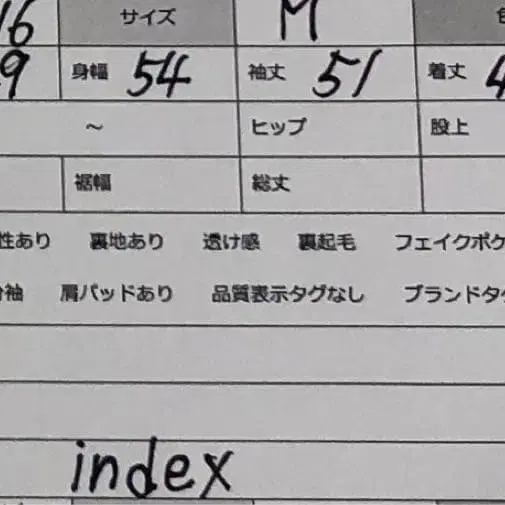 16 サイズ M
9 身幅 54 袖丈 51 着丈 4
~ ヒップ 股上
裾幅 総丈
性あり 裏地あり 透け感 裏起毛 フェイクポケ
袖 肩パッドあり 品質表示タグなし ブランドタ
index